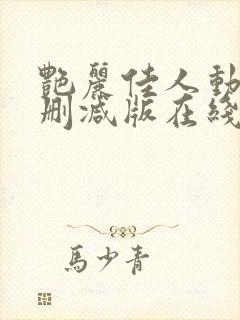 艷麗佳人動
刪減版在綫
馬少青